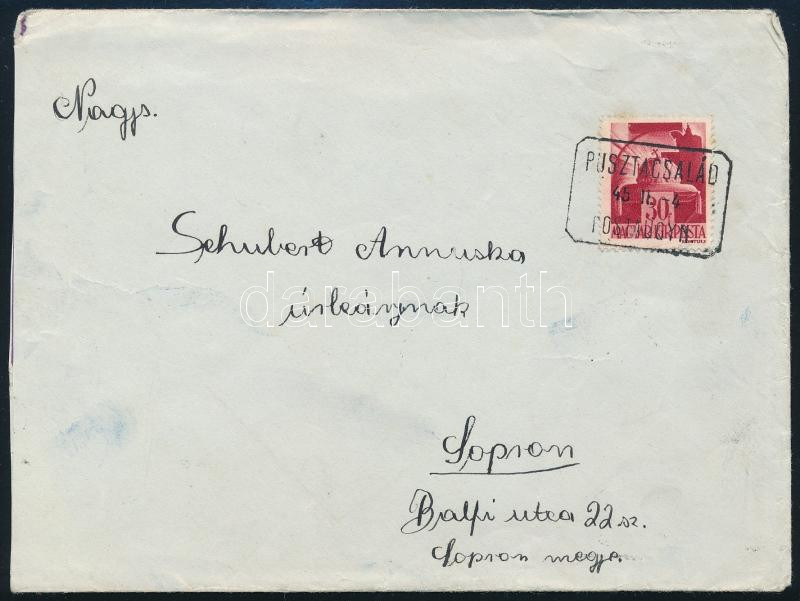 Nagys.
PUSZTACSALÁD
45 II. -4
POSTAÜGYN
30
MAGYAR KIR. POSTA
Schubert Annuska
úrleánynak
darabanth
Sopron
Balfi utca 22 sz.
Sopron megye.